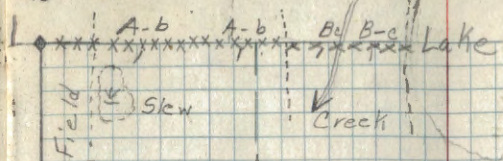 1 A-b A-b Bc B-c Lake
Field Slew Creek